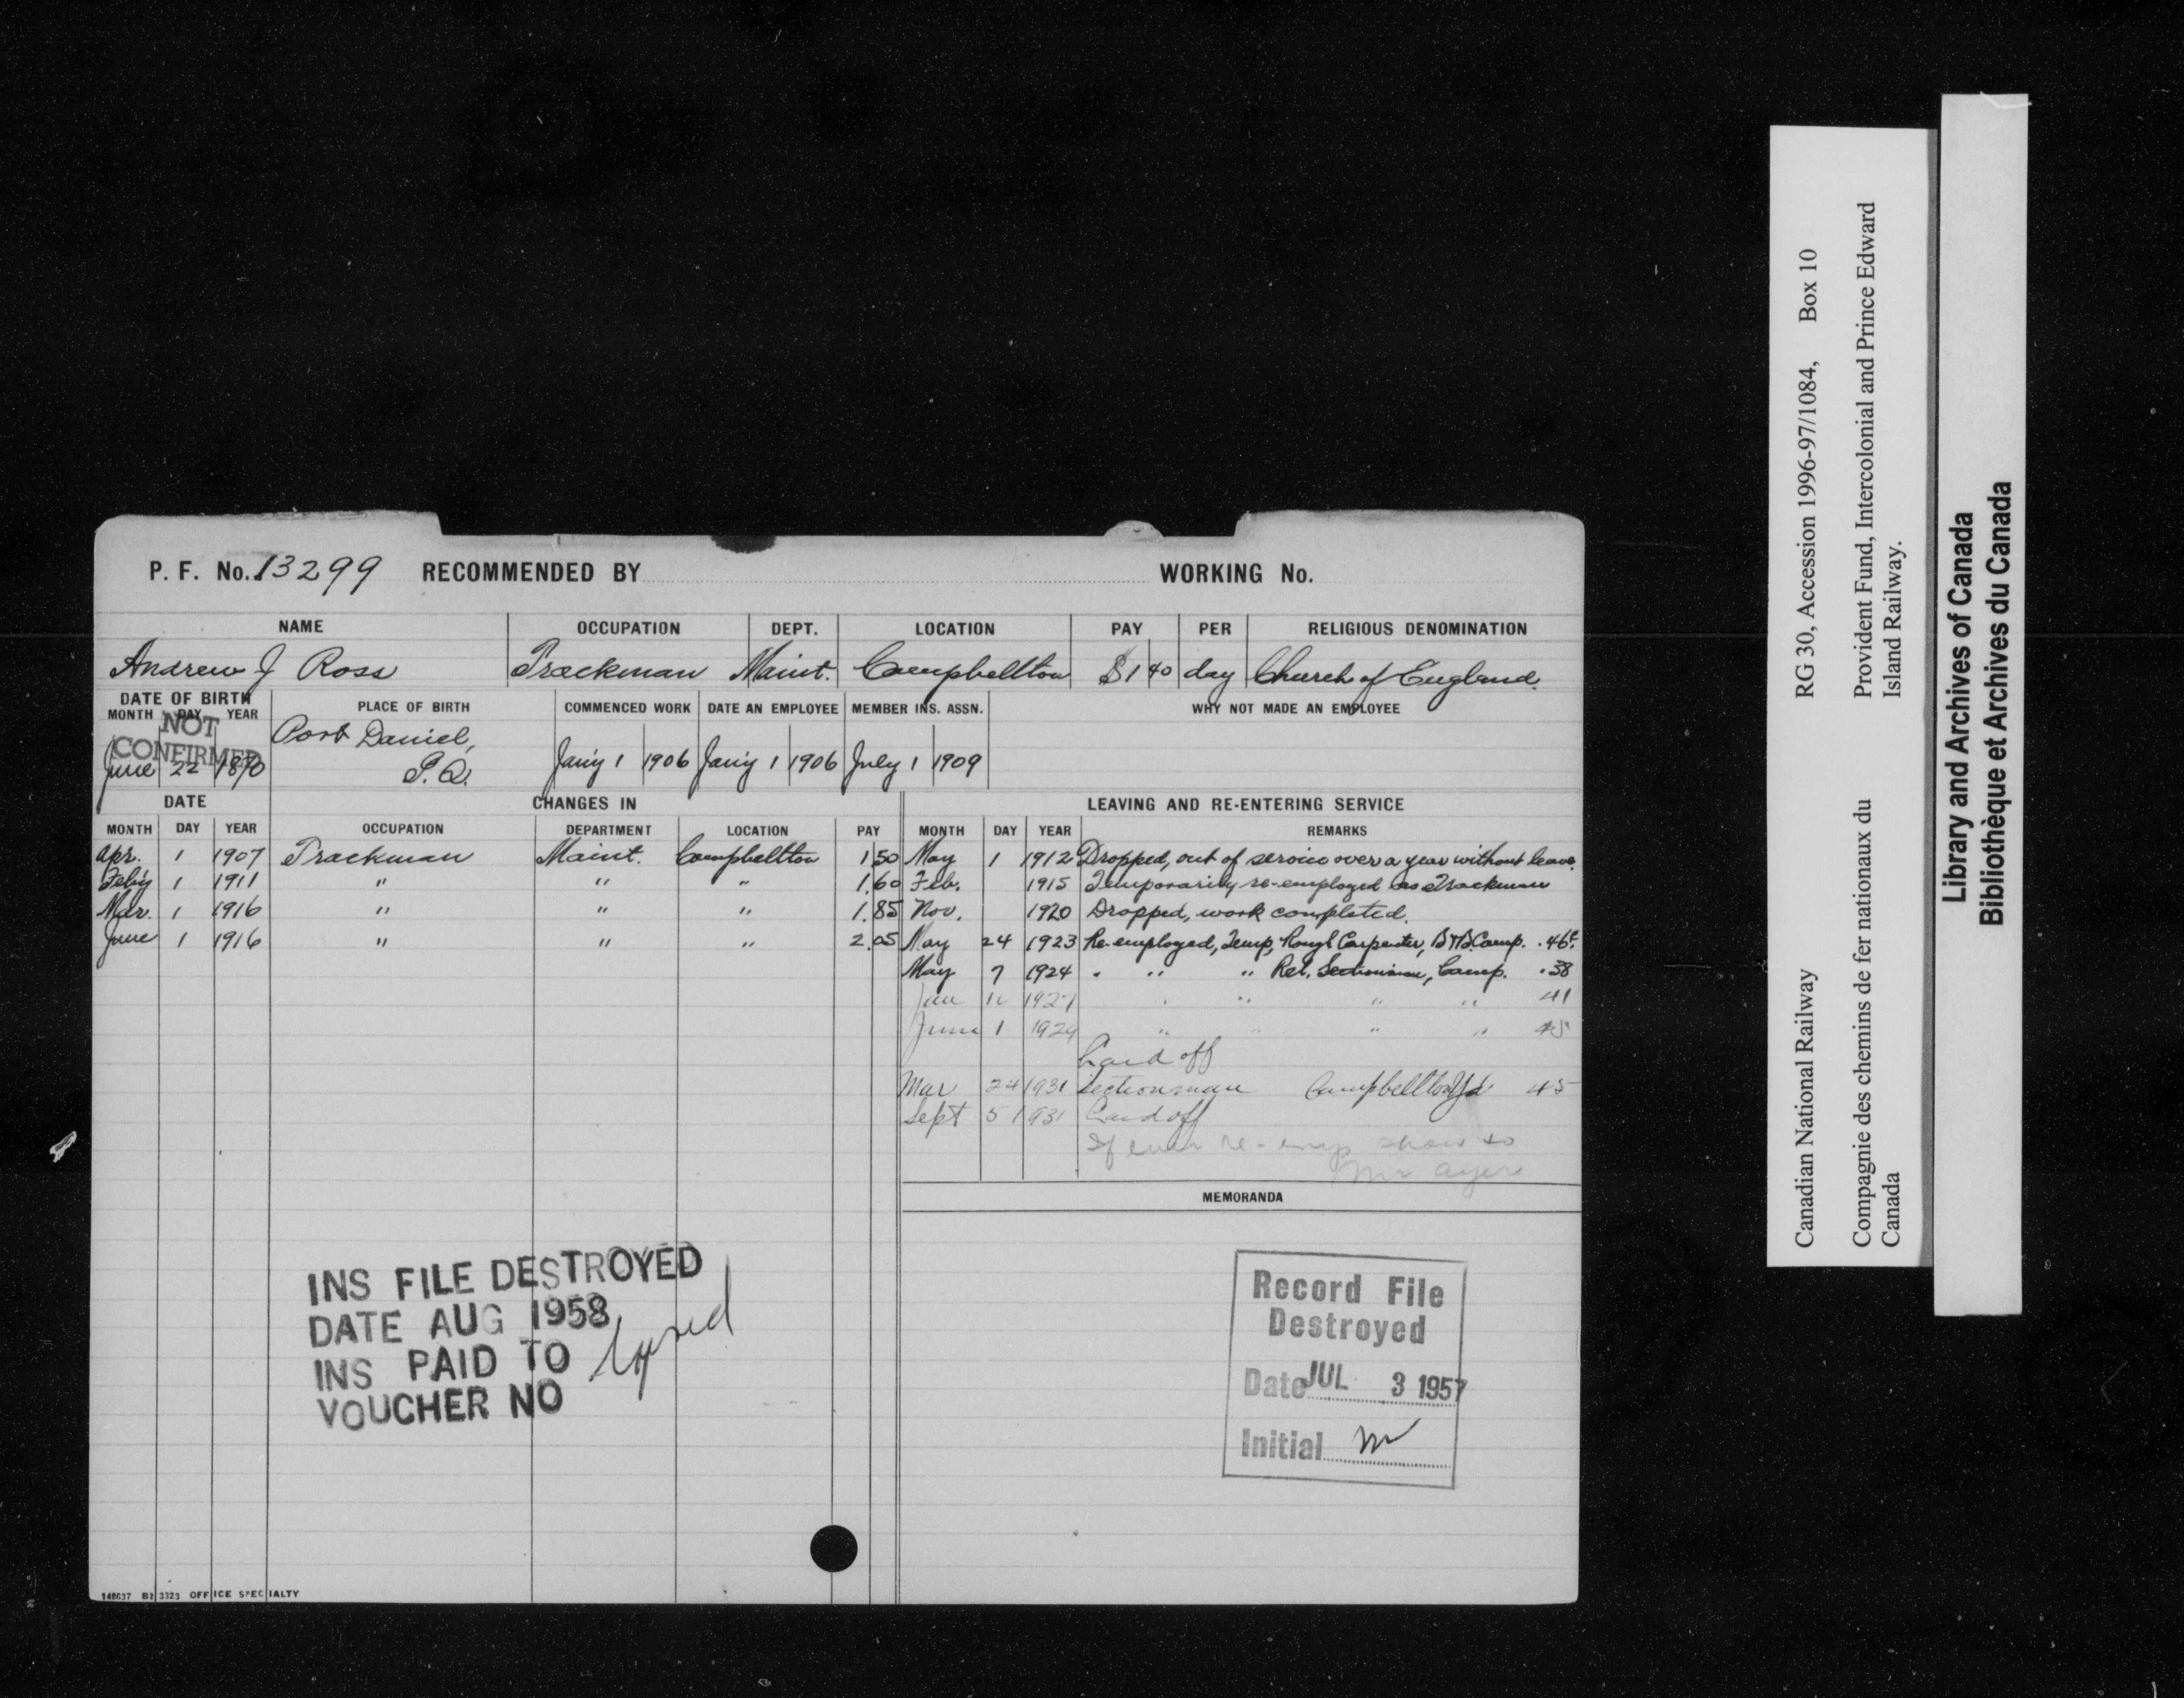 P. F. No. 13299 RECOMMENDED BY WORKING No.
NAME OCCUPATION DEPT. LOCATION PAY PER RELIGIOUS DENOMINATION
Andrew J Ross Trackman Maint. Campbellton $1 40 day Church of England.
DATE OF BIRTH PLACE OF BIRTH COMMENCED WORK DATE AN EMPLOYEE MEMBER INS. ASSN. WHY NOT MADE AN EMPLOYEE
MONTH DAY YEAR
NOT
CONFIRMED
Port Daniel,
June 22 1870 P.Q. Jan'y 1 1906 Jan'y 1 1906 July 1 1909
DATE CHANGES IN LEAVING AND RE-ENTERING SERVICE
MONTH DAY YEAR OCCUPATION DEPARTMENT LOCATION PAY MONTH DAY YEAR REMARKS
Apr. 1 1907 Trackman Maint. Campbellton 1 50 May 1 1912 Dropped, out of service over a year without leave.
Feb'y 1 1911 " " " 1.60 Feb. 1915 Temporarily re-employed as Trackman
Mar. 1 1916 " " " 1.85 Nov. 1920 Dropped, work completed.
June 1 1916 " " " 2.05 May 24 1923 Re-employed, Temp, Rough Carpenter, B&B Camp. .46¢
May 7 1924 " " " Rel. Sectionman, Camp. .38
Jan 1927 " " " " 41
June 1 1929 " " " " 45
Laid off
Mar 24 1931 Sectionman Campbellton Yd 45
Sept 5 1931 Laid off
If ever re-emp show to
Mr Ayers
MEMORANDA
INS FILE DESTROYED
DATE AUG 1958
INS PAID TO
VOUCHER NO
Record File
Destroyed
Date JUL 3 1957
Initial
148637 B2 3323 OFFICE SPECIALTY
Canadian National Railway RG 30, Accession 1996-97/1084, Box 10
Compagnie des chemins de fer nationaux du Provident Fund, Intercolonial and Prince Edward
Canada Island Railway.
Library and Archives of Canada
Bibliothèque et Archives du Canada